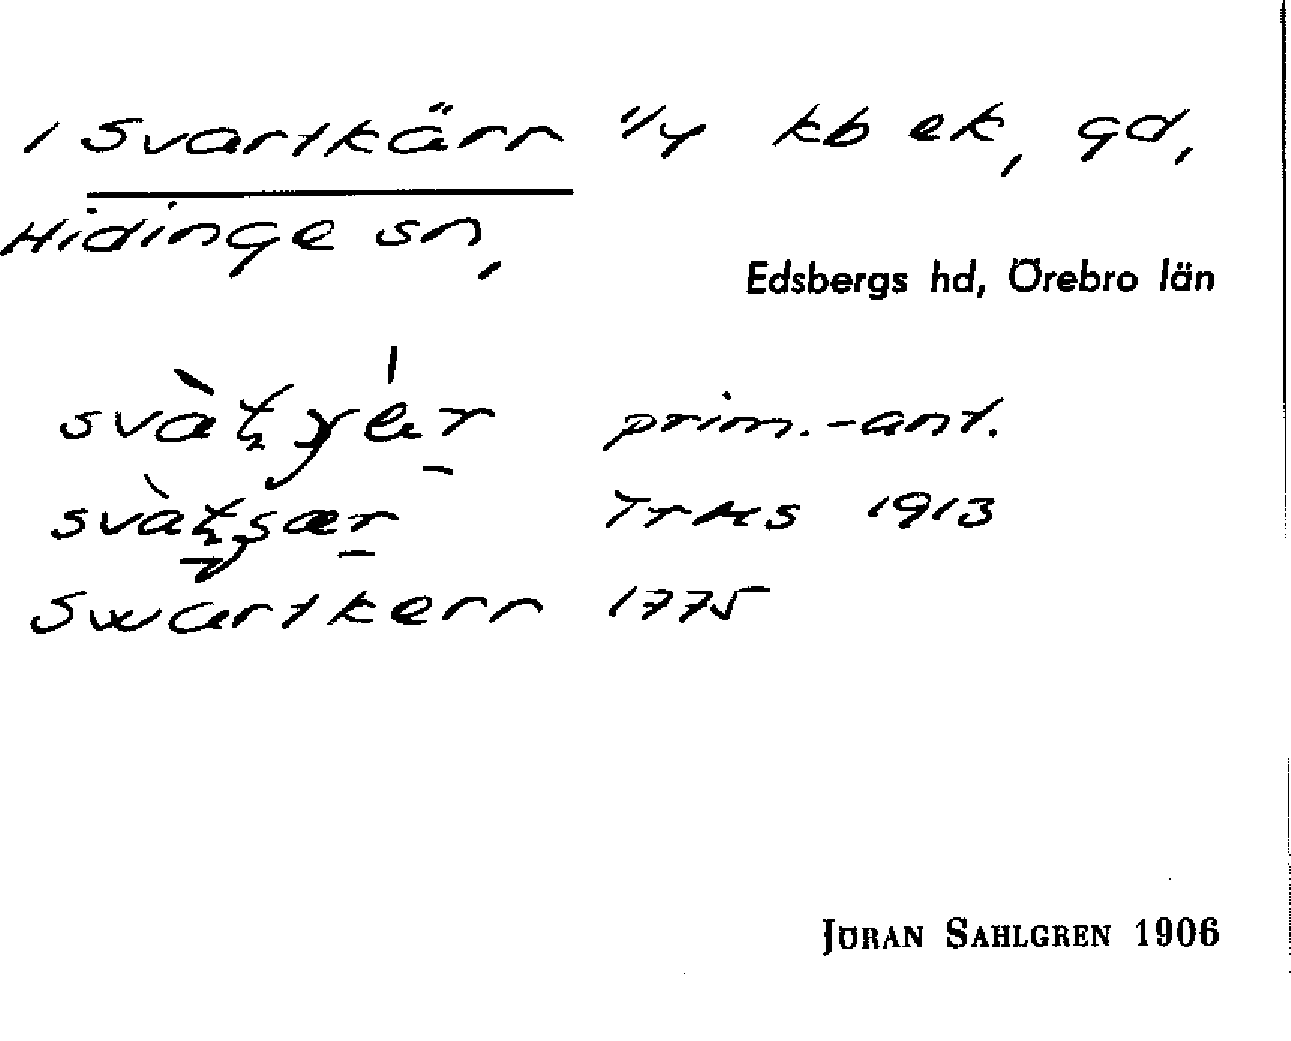 1 Svartkärr 1/4 kb ek, gd,
Hidinge sn,
Edsbergs hd, Örebro län
prim.-ant.
1913
Swartkerr 1775
JÖRAN SAHLGREN 1906